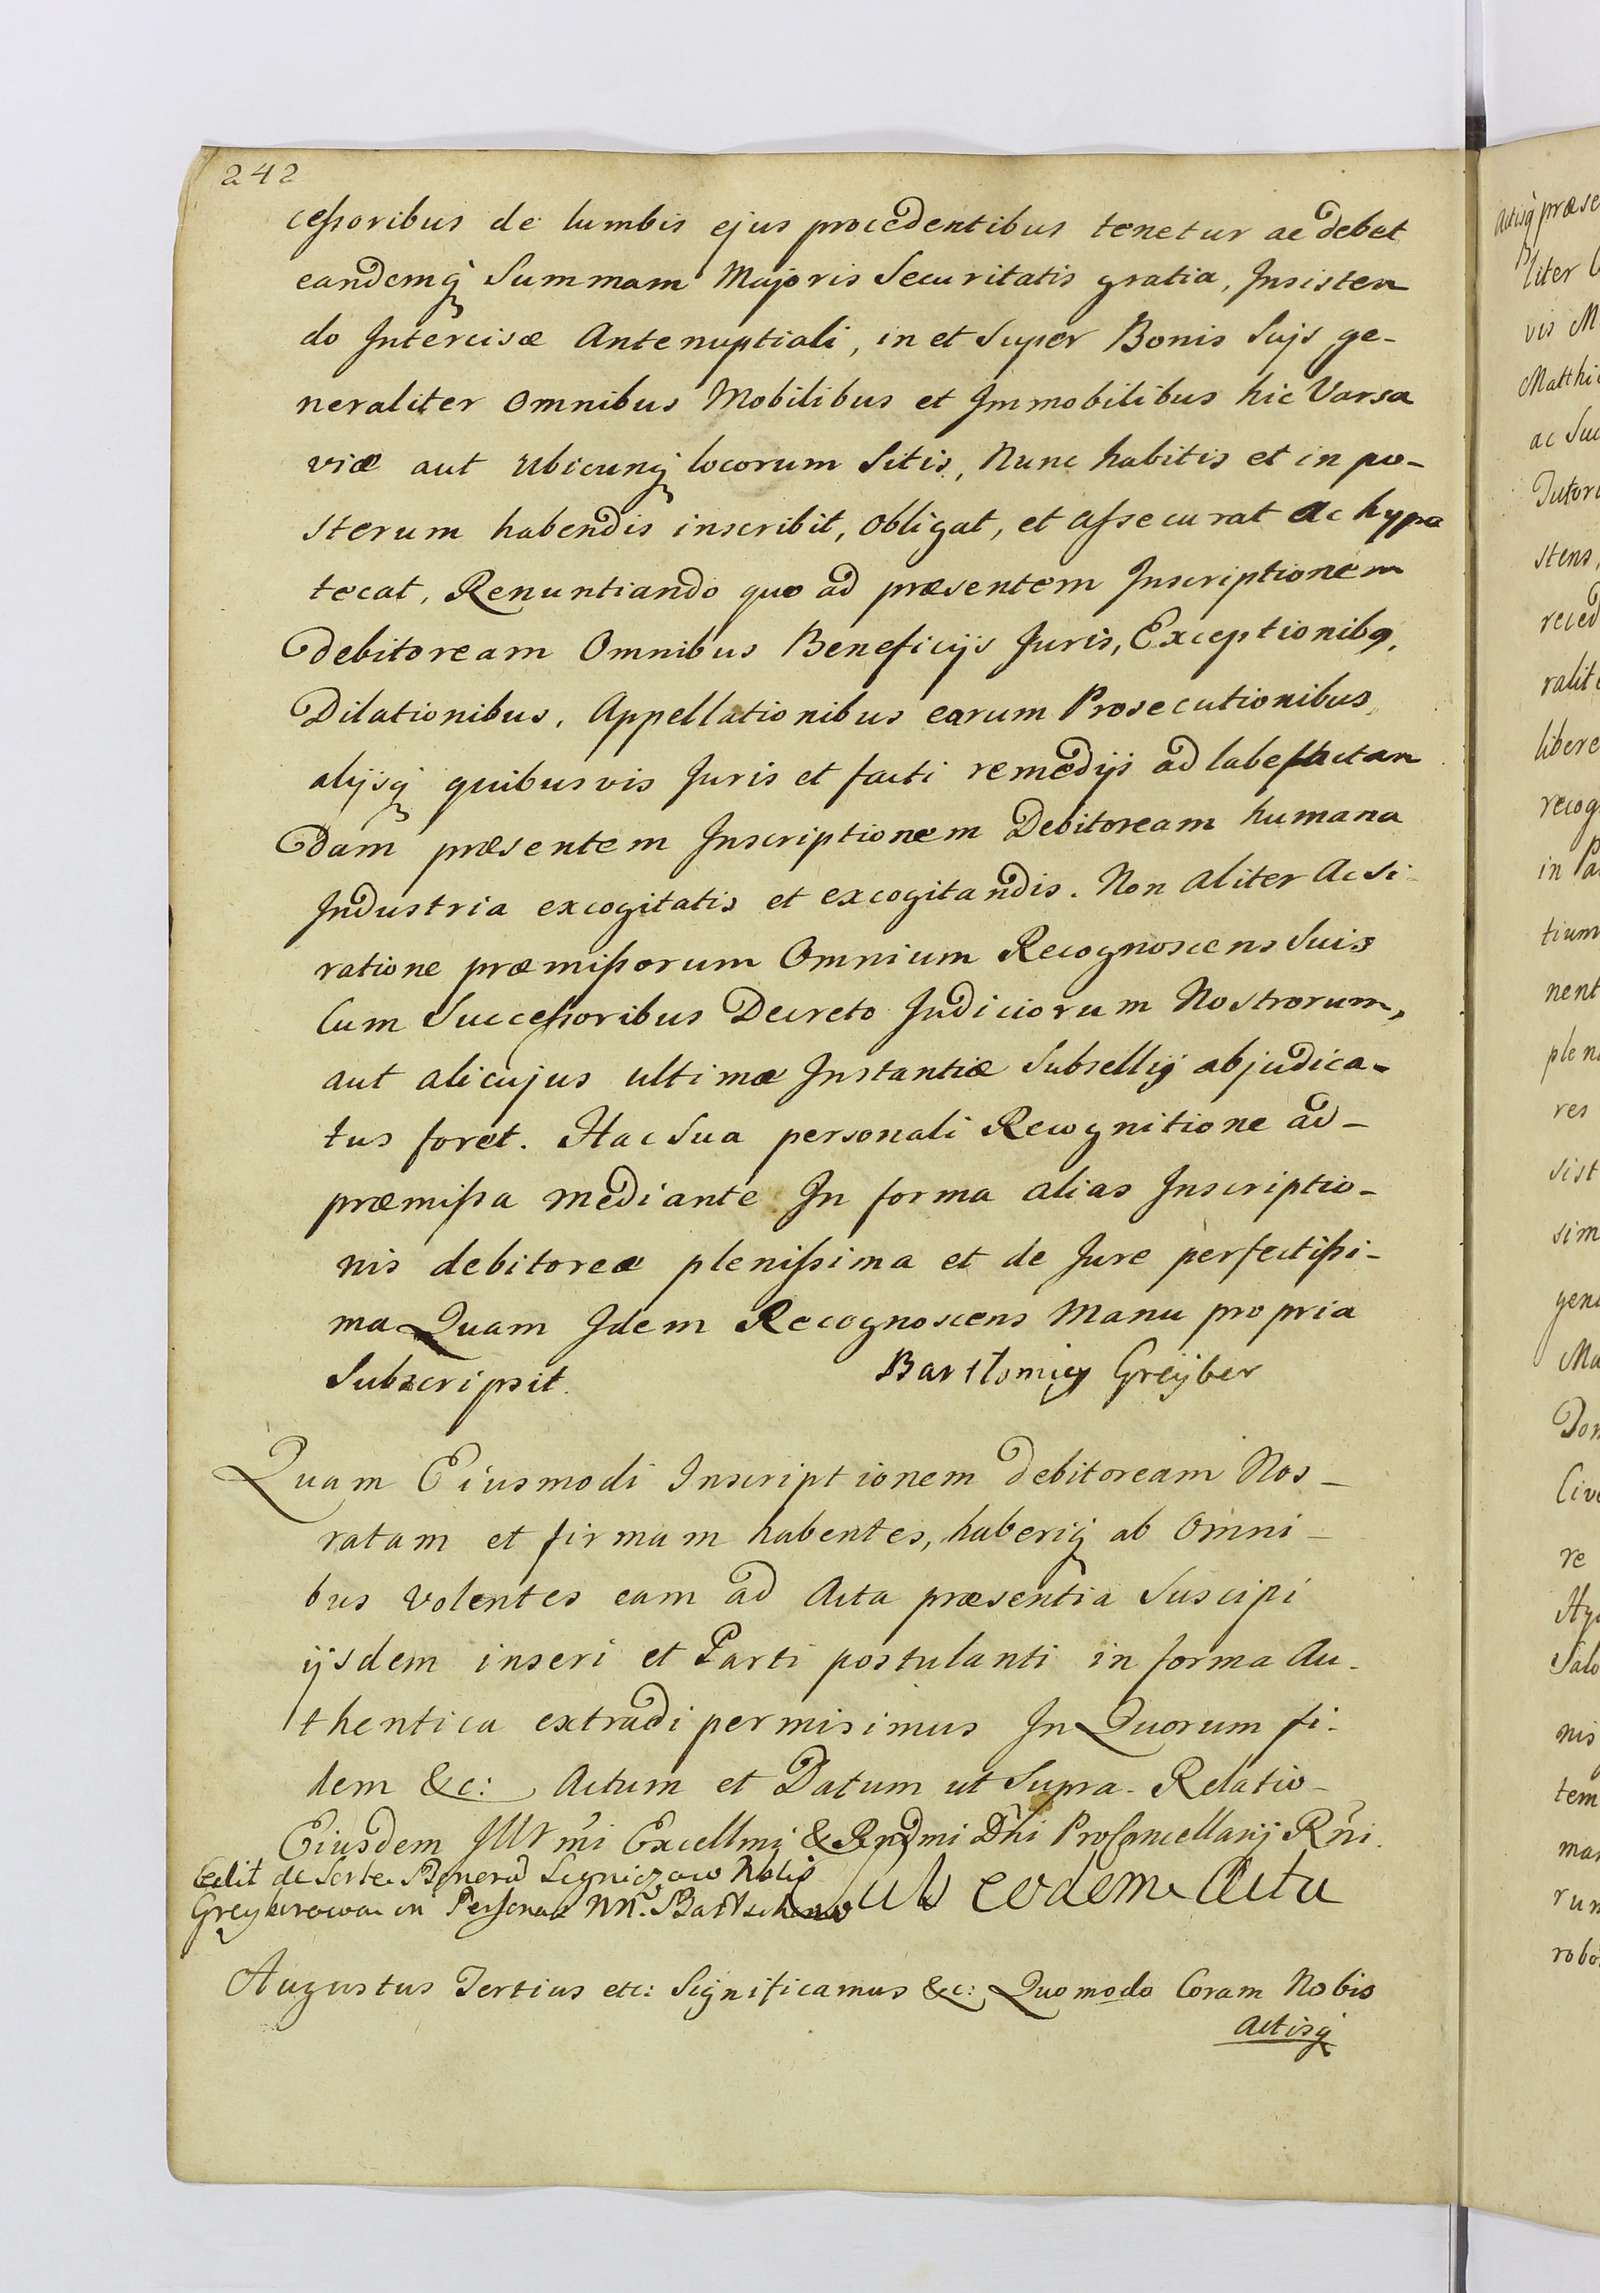 242
cessoribus de lumbis ejus procedentibus tenetur ac debet
eandemq Summam Majoris Securitatis gratia, Insisten
do Intercisæ Antenuptiali, in et Super Bonis Suis ge-
neraliter Omnibus Mobilibus et Immobilibus hic Varsa
viæ aut Ubicunq locorum Sitis, Nunc habitis et in po-
sterum habendis inscribit, obligat, et assecurat ac hypo
tecat, Renuntiando quo ad præsentem Inscriptionem
debitoream Omnibus Beneficijs Juris, Exceptionibq,
Dilationibus, Appellationibus earum Prosecutionibus,
alijsq quibusvis Juris et facti remedijs ad labefactan
dam præsentem Inscriptionem Debitoream humana
Industria excogitatis et excogitandis. Non aliter Ac Si
ratione præmissorum Omnium Recognoscens Suis
Cum Successoribus Decreto Judiciorum Nostrorum,
aut alicujus ultimæ Instantiæ Subsellij abjudica-
tus foret. Hac Sua personali Recognitione ad-
præmissa mediante In forma alias Inscriptio-
nis debitoreæ plenissima et de Jure perfectissi-
ma Quam Idem Recognoscens Manu propria
Subscripsit. Bartlomiey Greÿber
Quam Eiusmodi Inscriptionem debitoream Nos-
ratam et firmam habentes, haberiq ab Omni-
bus Volentes eam ad Acta præsentia Suscipi
ijsdem inseri et Parti postulanti in forma Au-
thentica extradi permisimus In Quorum fi-
dem &c: Actum et Datum ut Supra. Relatio-
Eiusdem Illrmi Excellmi & Rndmi Dni Procancellarij Rni.
Cedit de Sorte Bonerd Legniczow Nblis
in Personas NN.
Sub eodem Actu
Augustus Tertius etc: Significamus &c: Quomodo Coram Nobis
Actisq
Actisq præse
liter
vis M
Matthi
ac Suc
Tutori
stens,
reced
ralite
libere
recog
in Pa
tium
nent
plen
res
sist
sim
gene
Ma
Dom
Cive
re
Hy
Salo
nis
tem
man
run
robo